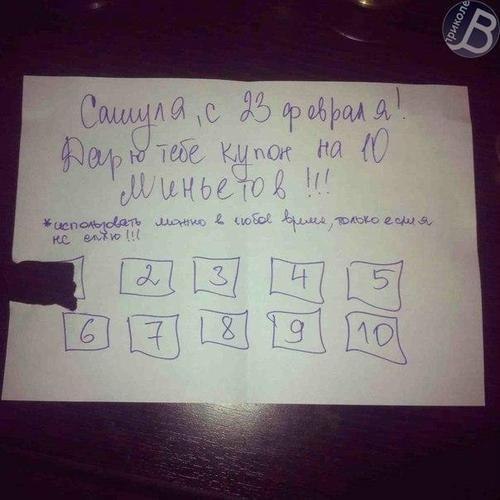 Сашуля, с 23 февраля!
Дарю тебе купон на 10
Миньетов !!!
*использовать можно в любое время, только если я
не сплю!!!
2 3 4 5
6 7 8 9 10
В приколе